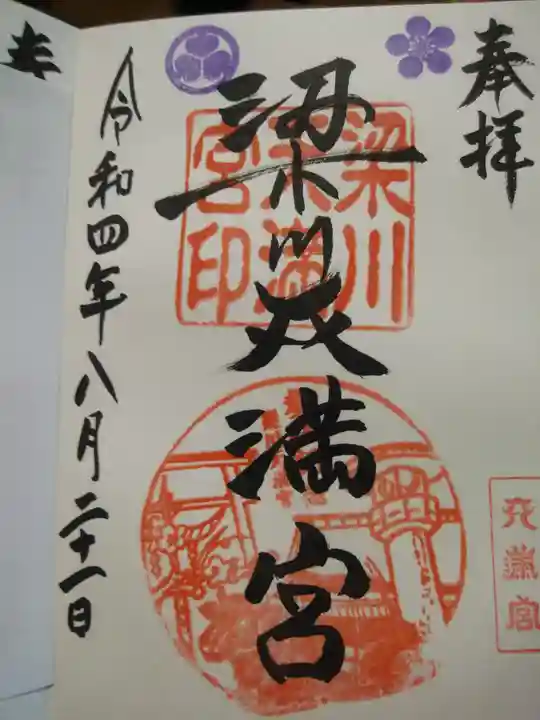 奉拝
梁川天満宮
梁川
天満
宮印
令和四年八月二十一日
天満宮